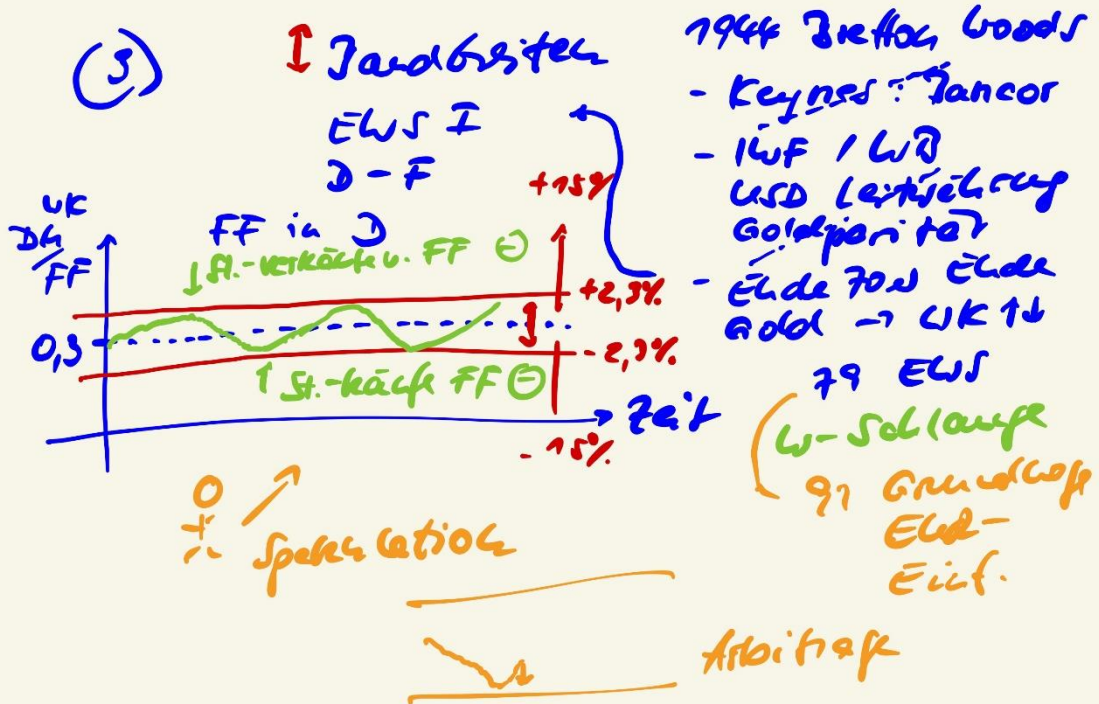 ③
↕ Bandbreiten
EWS I
D - F
WK
DM/FF
FF in D
↓ St.-verkäufe v. FF ⊖
+15%
+2,3%
0,3
- 2,3%
↑ St.-käufe FF ⊖
→ Zeit
- 15%
1944 Bretton Woods
- Keynes: Bancor
- IWF / WB
USD Leitwährung
Goldparität
- Ende 70er Ende
Gold → WK ↑↓
79 EWS
W-Schlange
Grundlage
Einf.
Spekulation
Arbitrage